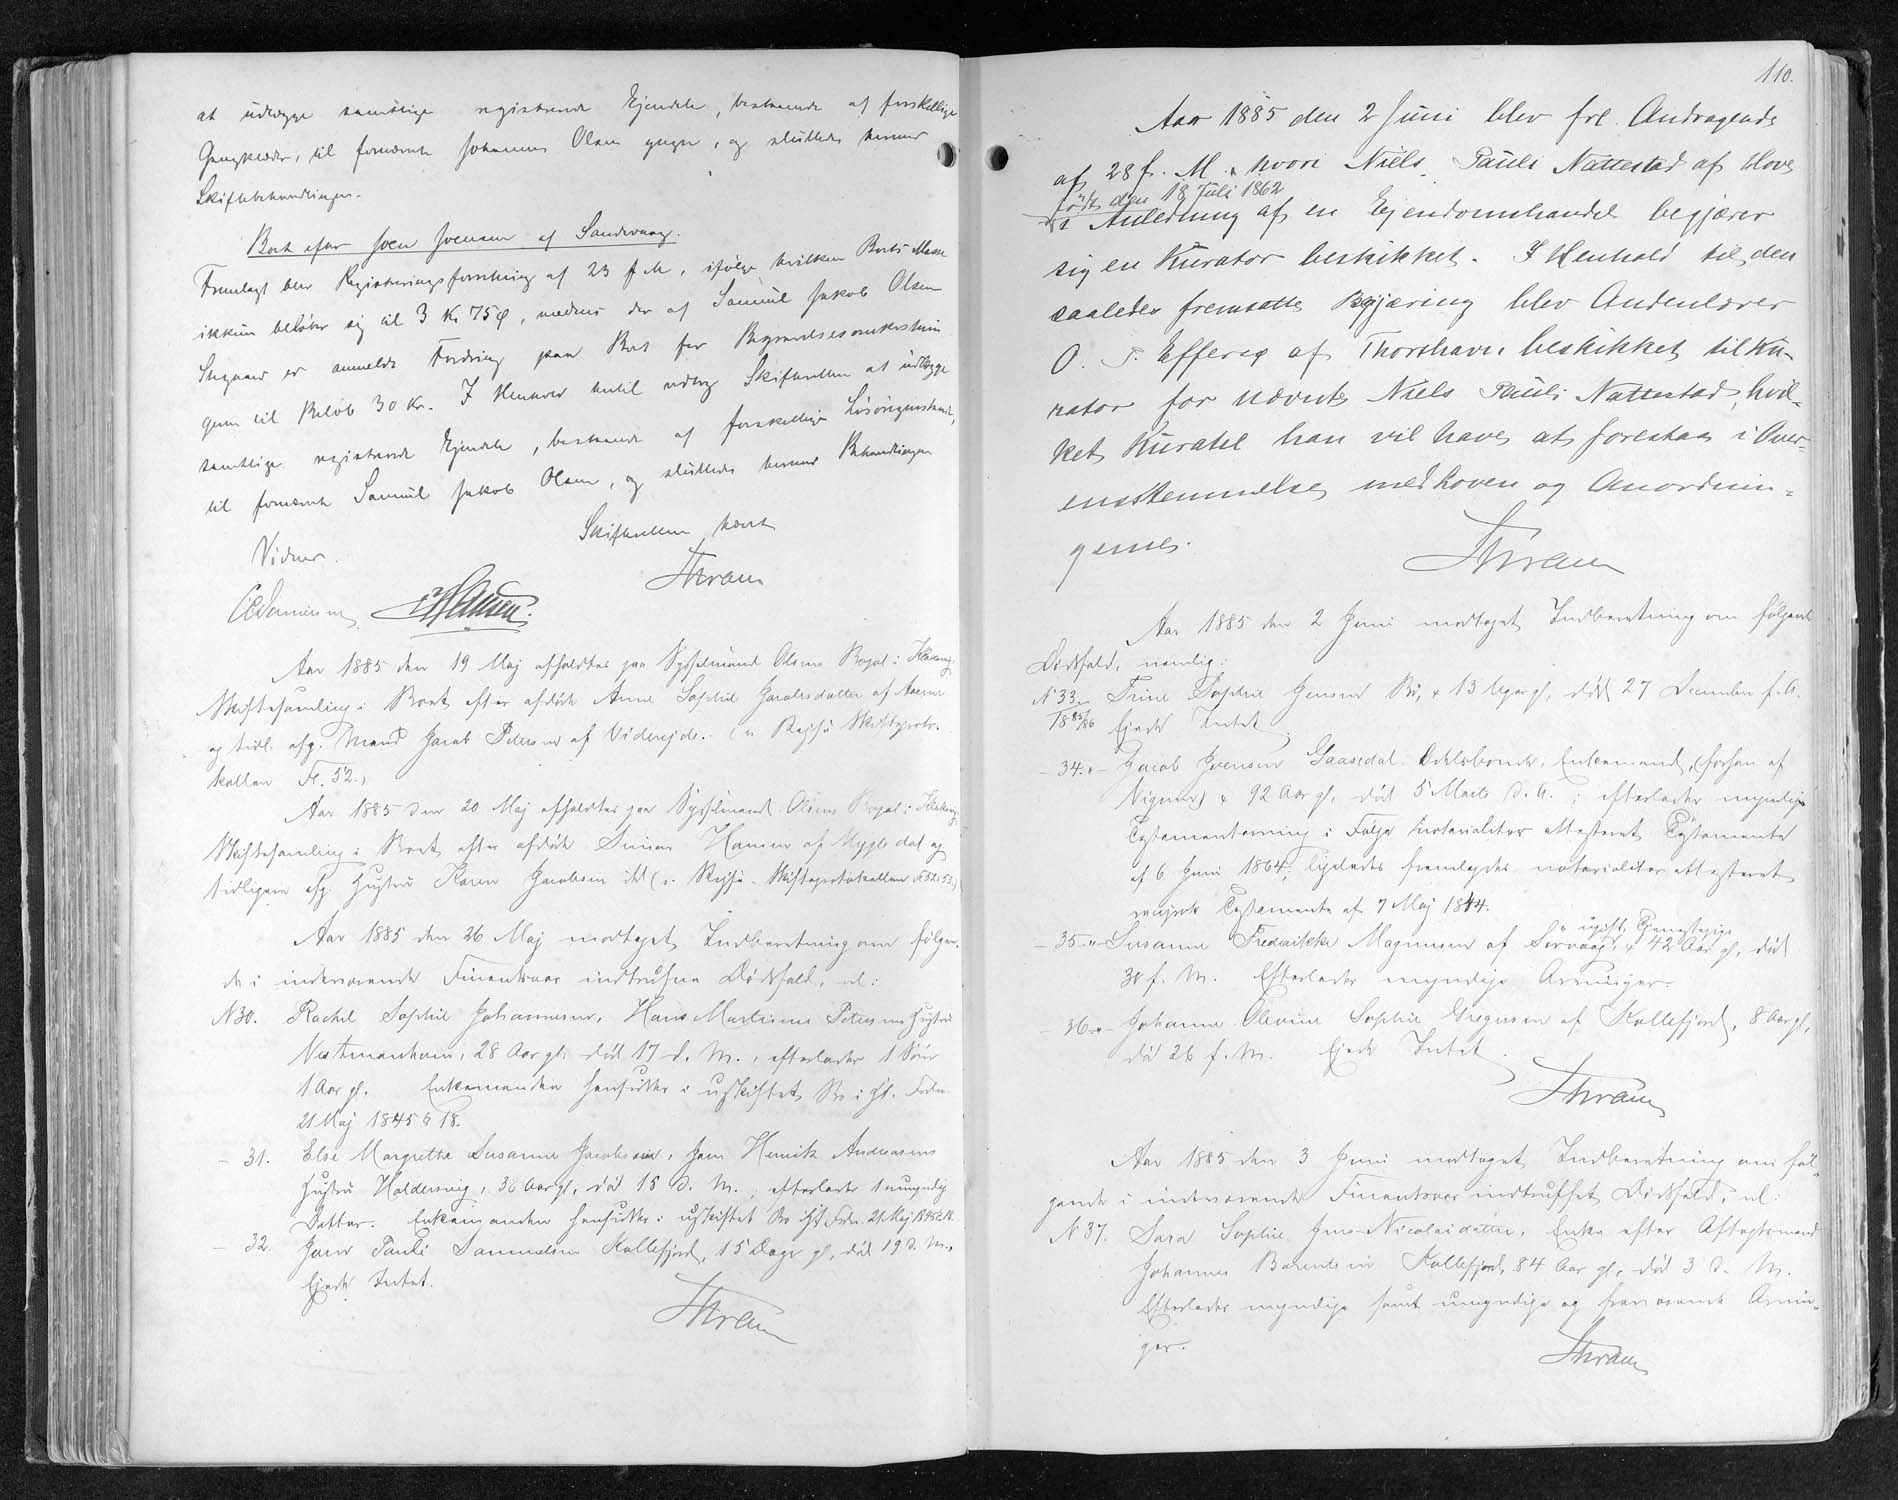 at udlægge samtlige registrerede Ejendele, bestaaende af forskellige
Gangklæder, til fornævnte Johannes Olsen , og sluttedes hermed
Skiftebehandlingen.
Boet efter Joen Joensen af Sandevaag.
Fremlagt blev Registreringsforretning af 23 f. M., ifølge hvilken Boets Masse
ikkun beløber sig til 3 Kr 75 Ø, medens der af Samuel Jakob Olsen
er anmeldt Fordring paa Boet for Begravelsesomkostnin
gern til Beløb 30 Kr. I Henhold hertil vedtog Skifteretten at udlægge
samtlige registrerede Ejendele, bestaaende af forskellige Løsøregjenstande,
til fornævnte Samuel Jakob Olsen, og sluttedes hermed Behandlingen
Skifteretten hævet
Vidner.
Thram
Aar 1885 den 19 Maj afholdtes paa Sysselmand Olsens Bopæl i
Skiftesamling i Boet efter afdøde Anne Sophie Jacobsdatter af
og tidl. afg. Mand Jacob Petersen af Videreide. (v. Rejse Skifteproto-
kollen Fl. 52.)
Aar 1885 den 20 Maj afholdtes paa Sysselmand Olsens Bopæl i
Skiftesamling i Boet efter afdøde Simon Hansen af Mygledal og
tidligere afg. Hustru Karen Jacobsen ibd (v. Rejse-Skifteprotokollen Fl 52 53.)
Aar 1885 den 26 Maj modtaget Indberetning om følgen-
de i indeværende Finantsaar indtrufne Dødsfald, nl:
N 30. Rachel Sophie Johannesen, Hans Martinus Petersens Hustru
Vestmanhavn, 28 Aar gl. død 17 d. M., efterlader 1 Søn
1 Aar gl. Enkemanden hensidder i uskiftet Bo i Hh. Frdn.
21 Maj 1845 § 18.
- 31. Else Margrethe Susanne Jacobsen, Joen Henrik Andreasens
Hustru Haldersvig, 36 Aar gl, død 15 d. M., efterlader 1 umyndig
Datter. Enkemanden hensidder i uskiftet Bo Frdn. 21 Maj 1845 § 18.
- 32. Pauli Samuelsen Kollefjord, 15 Dage gl, død 19 d. M.,
Ejede Intet.
Thram
110.
Aar 1885 den 2 Juni blev frl. Andragende
af 28 f. M. hvori Niels Pauli Nattestad af Hove
født den 18 Juli 1862
i Anledning af en Ejendomshandel begjærer
sig en Kurator beskikket. I Henhold til den
saaledes fremsatte Begjæring blev Andenlærer
O. Effersø af Thorshavn beskikket til Ku-
rator for nævnte Niels Pauli Nattestad, hvil-
ket Kuratel han vil have at forestaa i Over-
ensstemmelse med Loven og Anordnin-
gerne.
Thram
Aar 1885 den 2 Juni modtaget Indberetning om følgende
Dødsfald, nemlig:
N 33. Trine Sophie Jensen Bø, 13 Uger gl, død 27 December f. A.
1885/86 Ejede Intet
- 34. - Jacob Joensen Gaasedal Odelsbonde, Enkemand, (forhen af
92 Aar gl, død 5 Marts d. A.; efterlader myndige
Testamentsarving i Følge notorialiter attesteret Testamente
af 6 Juni 1864; ligeledes fremlagdes notorialiter attesteret
Testamente af 7 Maj 1844.
ugift, Tjenestepige
- 35 - Susanne Fredrikke Magnusen af Sørvaag, 42 Aar gl, død
30 f. M. Efterlader myndige Arvinger.
- 36 - Johanne Olevine Sophie Gregersen af Kollefjord, 8 Aar gl,
død 26 f. M. Ejede Intet.
Thram
Aar 1885 den 3 Juni modtaget Indberetning om føl-
gende i indeværende Finantsaar indtruffet Dødsfald, nl:
N 37. Sara Sophie Jens-Nicolaidatter, Enke efter Aftægtsmand
Johannes Barentsen Kollefjord, 84 Aar gl, død 3 d. M.
Efterlader myndige samt umyndige og fraværende Arvin-
ger.
Thram